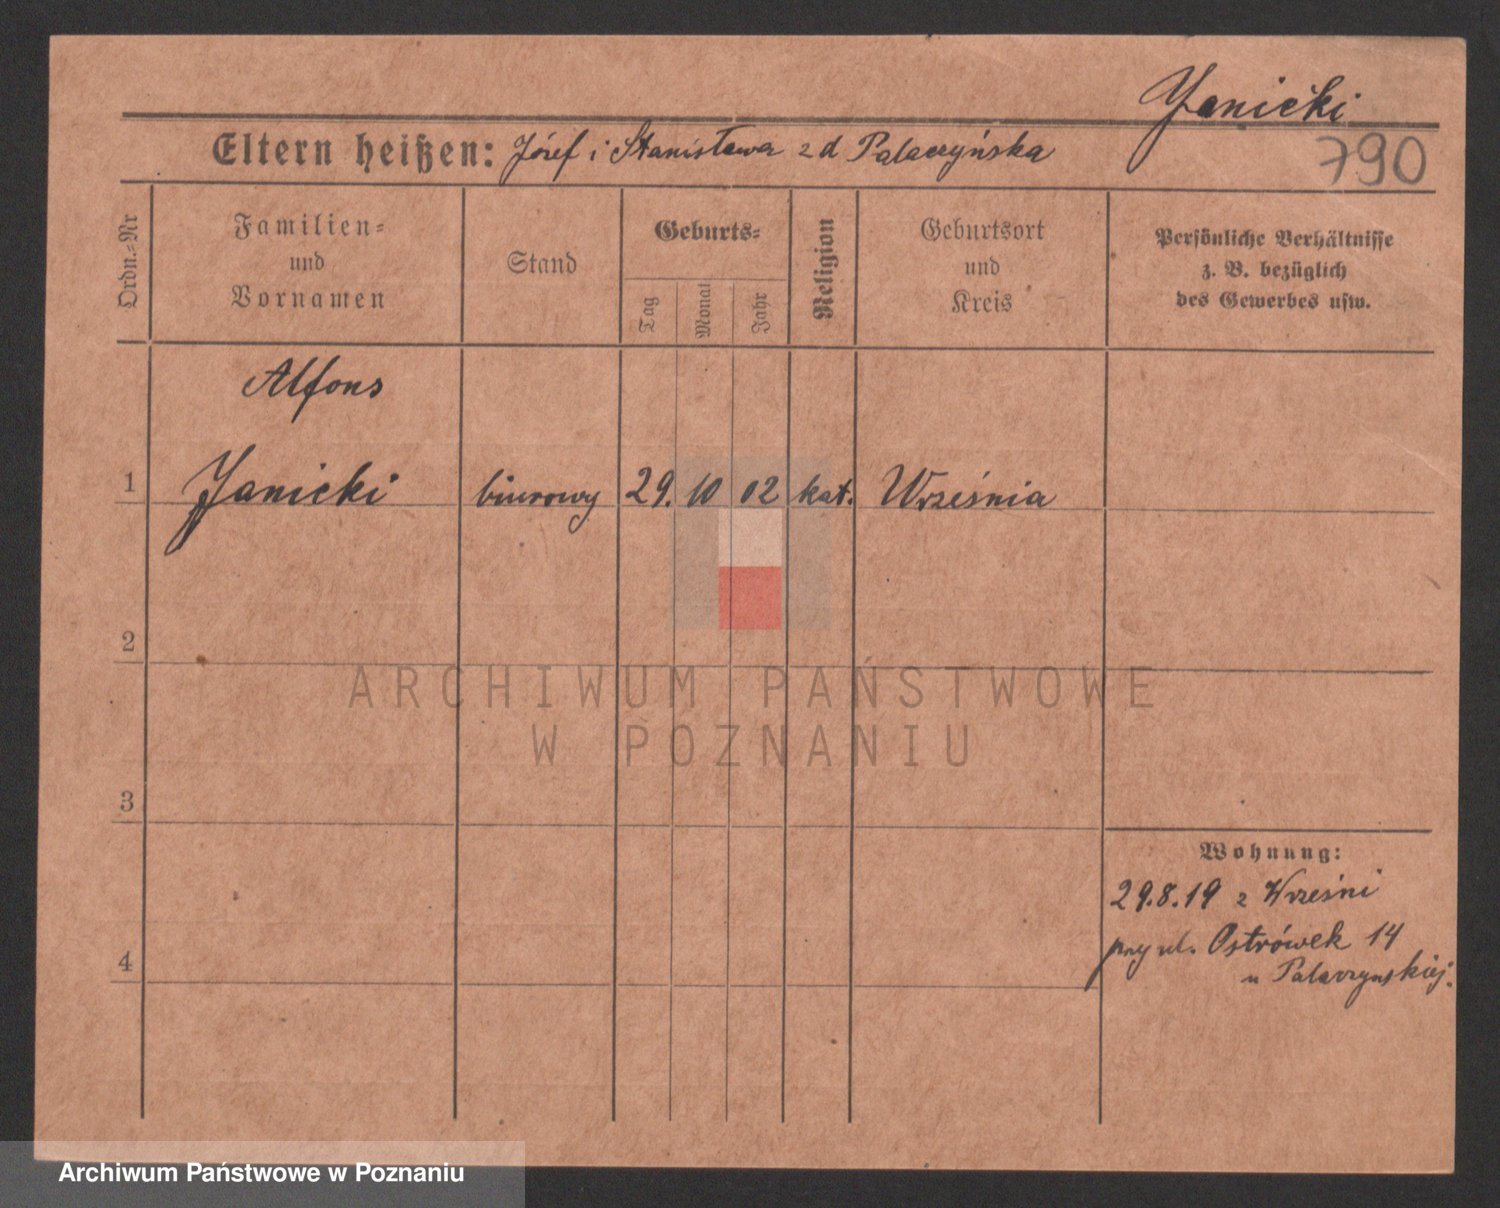 Janicki
Eltern heißen: Józef i Stanisława z d Palaczyńska
790
Ordn.=Nr
Familien=
und
Vornamen
Stand
Geburts=
Tag
Monat
Jahr
Religion
Geburtsort
und
Kreis
Persönliche Verhältnisse
z. B. bezüglich
des Gewerbes usw.
Alfons
1 Janicki biurowy 29. 10 02 kat. Września
2
ARCHIWUM PAŃSTWOWE
W POZNANIU
3
Wohnung:
29.8.19 z Wrześni
przy ul. Ostrówek 14
4
u Palaczynskiej.
Archiwum Państwowe w Poznaniu